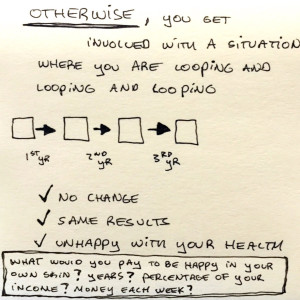 OTHERWISE, YOU GET
INVOLVED WITH A SITUATION
WHERE YOU ARE LOOPING AND
LOOPING AND LOOPING
1ST YR 2ND YR 3RD YR
✓ NO CHANGE
✓ SAME RESULTS
✓ UNHAPPY WITH YOUR HEALTH
WHAT WOULD YOU PAY TO BE HAPPY IN YOUR
OWN SKIN? YEARS? PERCENTAGE OF YOUR
INCOME? MONEY EACH WEEK?